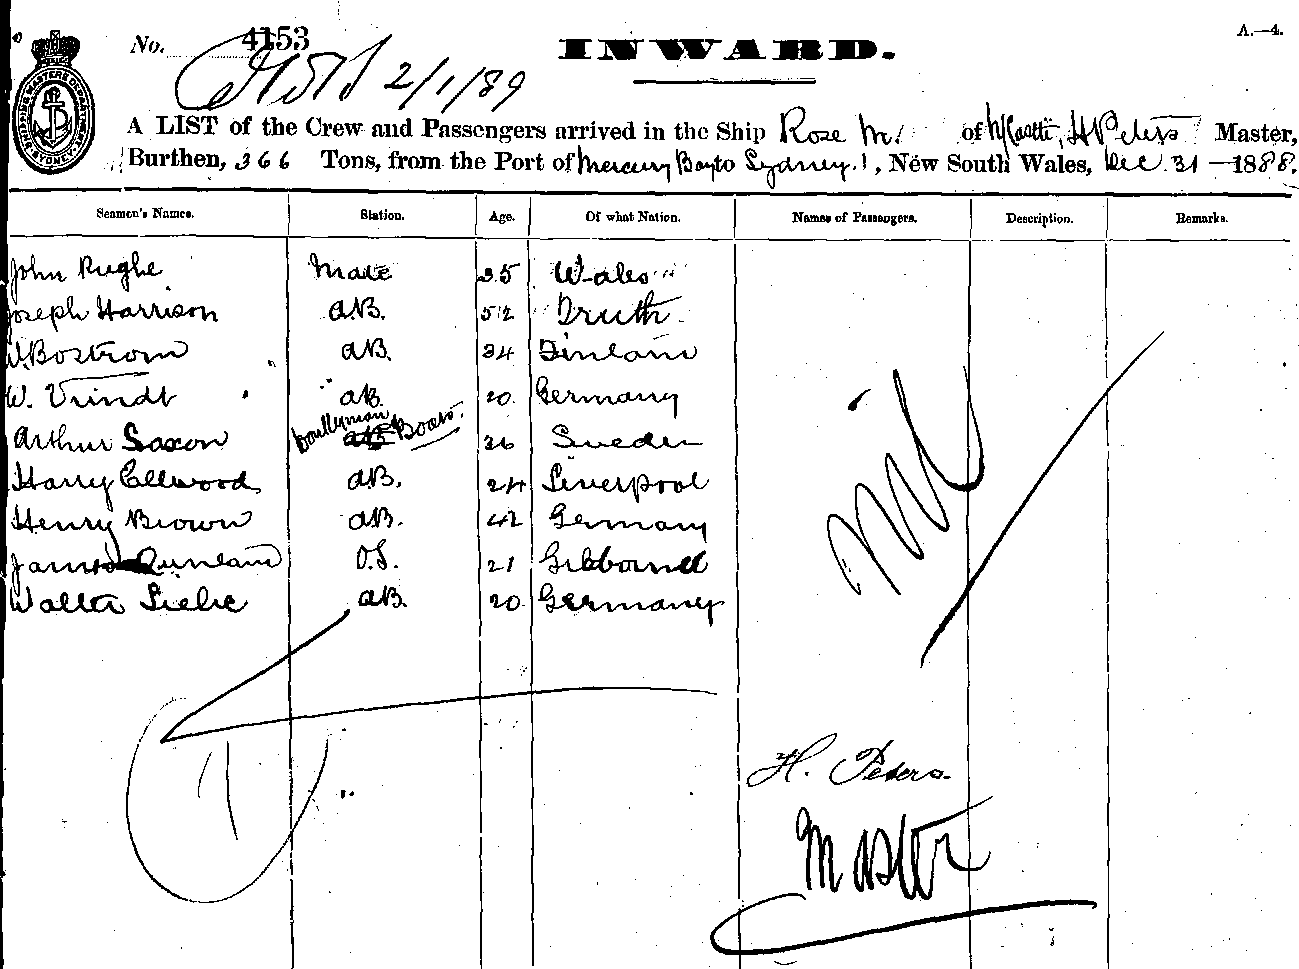 No. 4153
INWARD.
A.—4.
2/1/89
A LIST of the Crew and Passengers arrived in the Ship Rose M. of N/Castle, H Peters Master,
Burthen, 366 Tons, from the Port of Mercury Bay to Sydney, New South Wales, Dec. 31 —1888.
Seamen's Names. Station. Age. Of what Nation. Names of Passengers. Description. Remarks.
John Mate 35 Wales
Joseph Harrison AB. 52
Bostrom AB. 34
W. AB. 20 Germany
Arthur Saxon Boats. Sweden
Harry Ellwood AB. 24 Liverpool
Henry Brown AB. 42 Germany
James O.S. 21
Walter AB. 20 Germany
Nil
H. Peters
Master